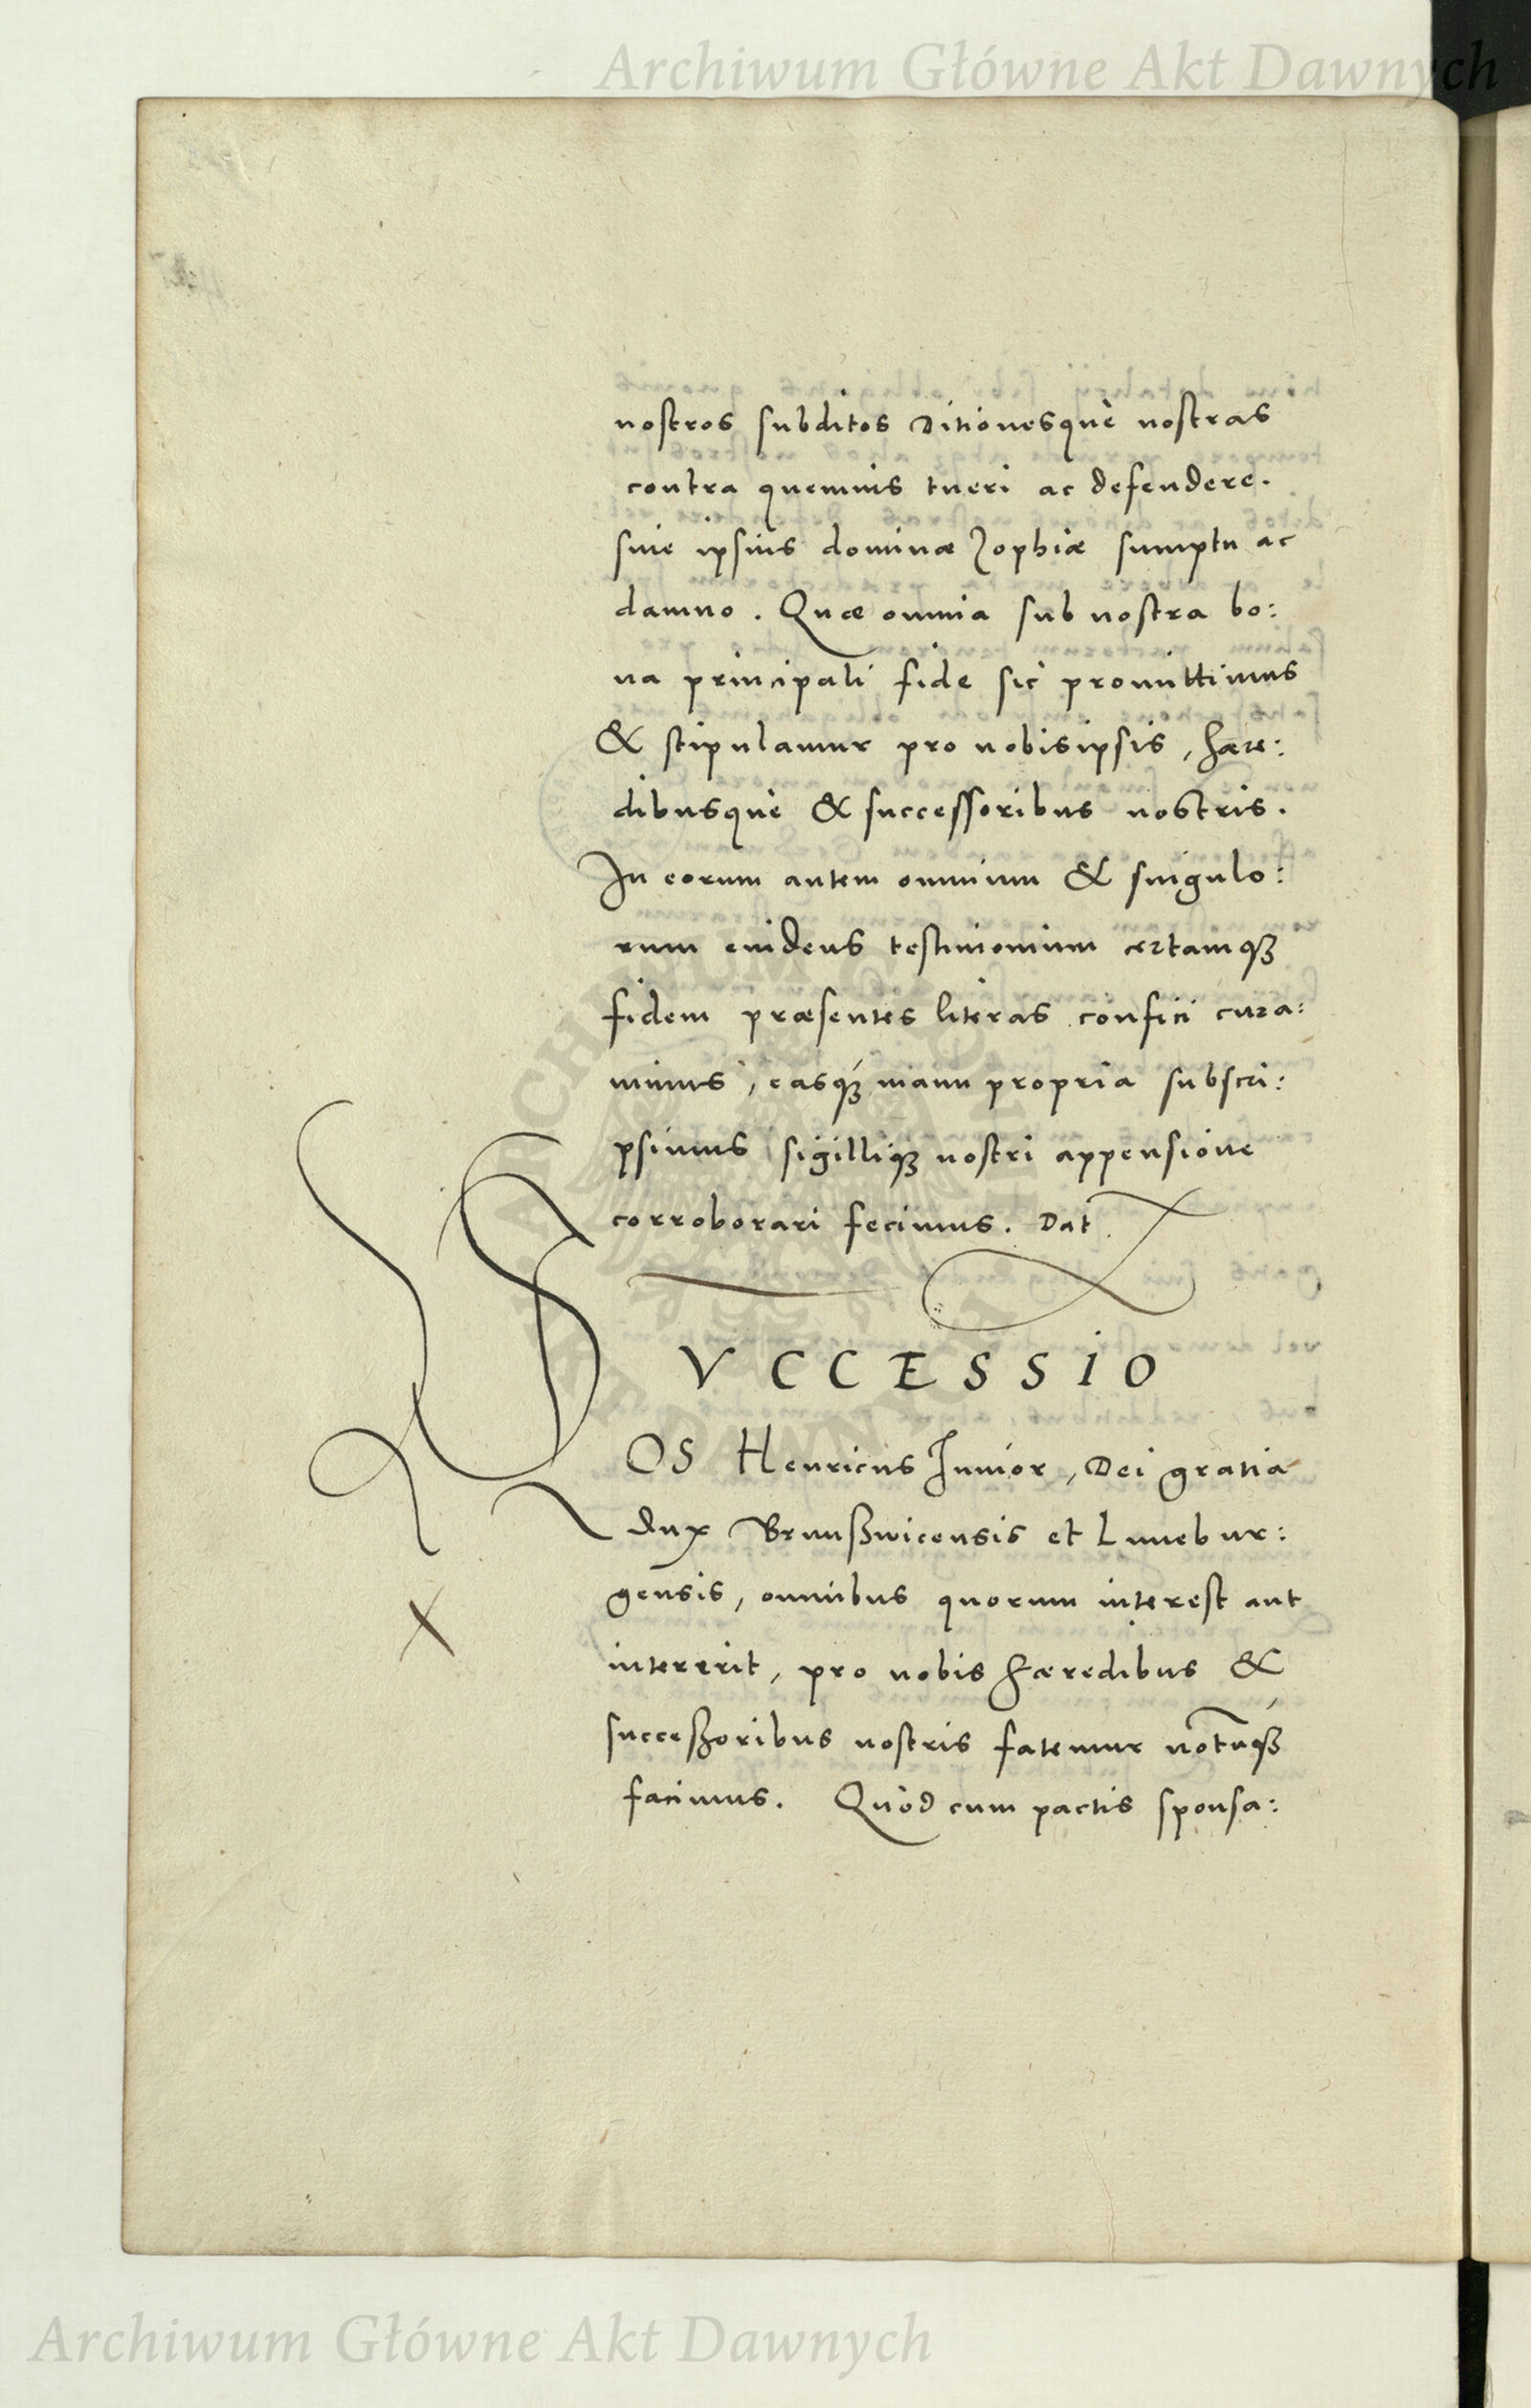 Archiwum Główne Akt Dawnych
nostros subditos Ditionesquè nostras
contra quemuis tueri ac defendere.
siue ipsius dominæ Zophiæ sumptu ac
damno. Quæ omnia sub nostra bo:
na principali fide sic promittimus
& stipulamur pro nobisipsis, hære:
dibusquè & successoribus nostris.
In eorum autem omnium & singulo:
rum euidens testimonium certamqꝫ
fidem præsentes literas confici cura:
uimus, easqꝫ manu propria subscri:
psimus sigilliqꝫ nostri appensione
corroborari fecimus. Dat
SVCCESSIO
NOS Henricus Iunior, Dei gratia
Dux Brunßwicensis et Lunebur:
gensis, omnibus quorum interest aut
intererit, pro nobis hæredibus &
succeßoribus nostris fatemur notūqꝫ
facimus. Quòd cum pactis sponsa:
X
Archiwum Główne Akt Dawnych